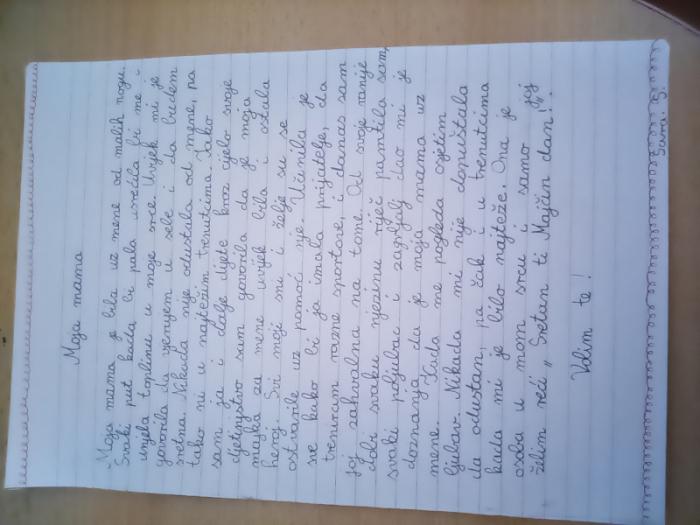 Moja mama
Moja mama je bila uz mene od malih nogu.
Svaki put kada bi pala usrećila bi me i
unijela toplinu u moje srce. Uvijek mi je
govorila da vjerujem u sebe i da budem
sretna. Nikada nije odustala od mene, pa
tako ni u najtežim trenutcima. Iako
sam ja i dalje dijete kroz cijelo svoje
djetinjstvo sam govorila da je moja
majka za mene uvijek bila i ostala
heroj. Svi moji sni i želje su se
ostvarile uz pomoć nje. Učinila je
sve kako bi ja imala prijatelje, da
treniram razne sportove, i danas sam
joj zahvalna na tome. Od svoje ranije
dobi svaku njezinu riječ pamtila sam,
svaki poljubac i zagrljaj dao mi je
do znanja da je moja mama uz
mene. Kada me pogleda osjetim
ljubav. Nikada mi nije dopuštala
da odustan, pa čak i u trenutcima
kada mi je bilo najteže. Ona je
osoba u mom srcu i samo joj
želim reći „Sretan ti Majčin dan!"
Volim te!
Sara. B.